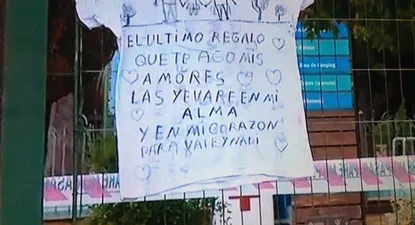 EL ULTIMO REGALO
QUE TE AGO MIS
AMORES
LAS YEVARE EN MI
ALMA
Y EN MI CORAZON
PARA VALEYNALI